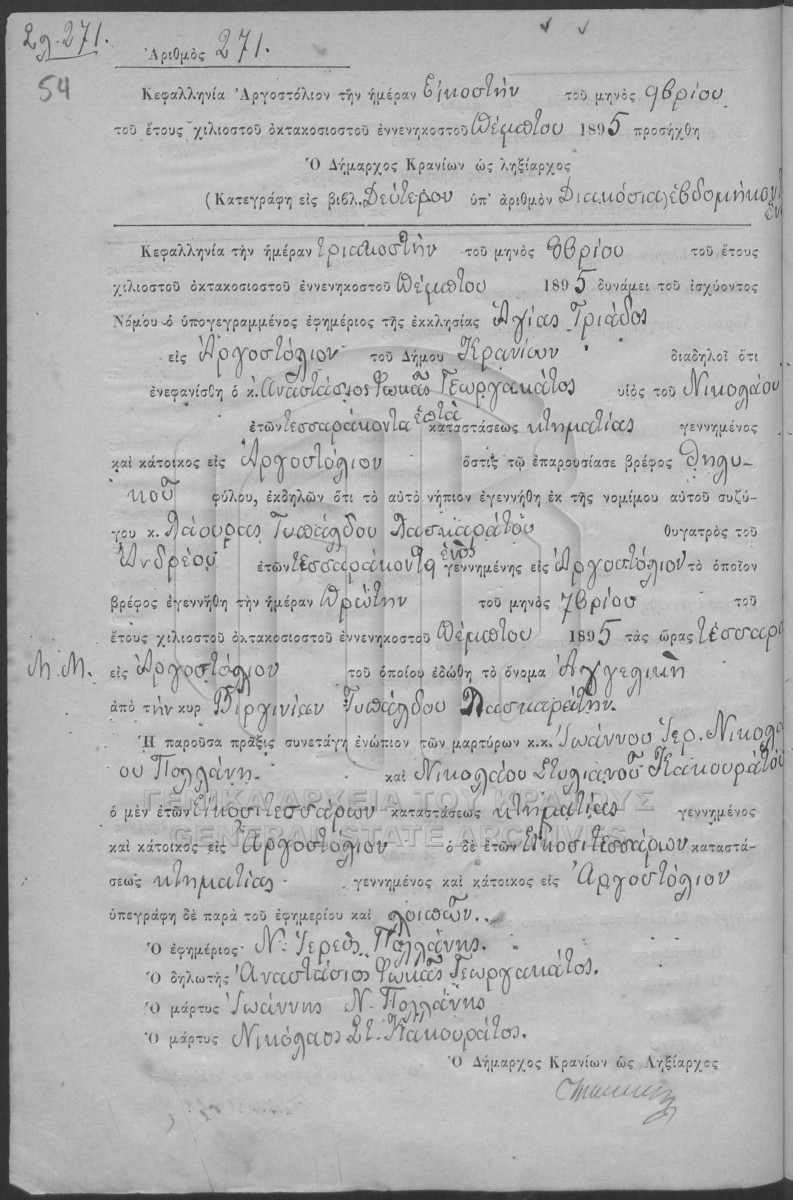 Σλ. 271.
54
Ἀριθμὸς 271.
Κεφαλληνία Ἀργοστόλιον τὴν ἡμέραν Εἰκοστὴν τοῦ μηνὸς 9βρίου
τοῦ ἔτους χιλιοστοῦ ὀκτακοσιοστοῦ ἐννενηκοστοῦ Πέμπτου 1895 προσήχθη
Ὁ Δήμαρχος Κρανίων ὡς ληξίαρχος
(Κατεγράφη εἰς βιβλ. Δεύτερον ὑπ' ἀριθμὸν Διακόσια ἑβδομήκοντ
ἕν
Κεφαλληνία τὴν ἡμέραν τριακοστὴν τοῦ μηνὸς 8βρίου τοῦ ἔτους
χιλιοστοῦ ὀκτακοσιοστοῦ ἐννενηκοστοῦ Πέμπτου 1895 δυνάμει τοῦ ἰσχύοντος
Νόμου ὁ ὑπογεγραμμένος ἐφημέριος τῆς ἐκκλησίας Ἁγίας Τριάδος
εἰς Ἀργοστόλιον τοῦ Δήμου Κρανίων διαδηλοῖ ὅτι
ἐνεφανίσθη ὁ κ. Ἀναστάσιος Φωκᾶς Γεωργακάτος υἱὸς τοῦ Νικολάου
ἐτῶν τεσσαράκοντα ἑπτὰ καταστάσεως κτηματίας γεννημένος
καὶ κάτοικος εἰς Ἀργοστόλιον ὅστις τῷ ἐπαρουσίασε βρέφος θηλυ-
κοῦ φύλου, ἐκδηλῶν ὅτι τὸ αὐτὸ νήπιον ἐγεννήθη ἐκ τῆς νομίμου αὐτοῦ συζύ-
γου κ. Λάουρας Τυπάλδου Λασκαράτου θυγατρὸς τοῦ
Ἀνδρέου ἐτῶν τεσσαράκοντα ἑνὸς γεννημένης εἰς Ἀργοστόλιον τὸ ὁποῖον
βρέφος ἐγεννήθη τὴν ἡμέραν Πρώτην τοῦ μηνὸς 7βρίου τοῦ
ἔτους χιλιοστοῦ ὀκτακοσιοστοῦ ἐννενηκοστοῦ Πέμπτου 1895 τὰς ὥρας τέσσαρα
Μ.Μ. εἰς Ἀργοστόλιον τοῦ ὁποίου ἐδώθη τὸ ὄνομα Ἀγγελικὴ
ἀπὸ τὴν κυρ Βιργινίαν Τυπάλδου Λασκαράτην.
Ἡ παροῦσα πρᾶξις συνετάγη ἐνώπιον τῶν μαρτύρων κ.κ. Ἰωάννου Ἱερ. Νικολά
ου Πολλάνη. καὶ Νικολάου Στυλιανοῦ Κακουράτου
ΓΕΝΙΚΑ ΑΡΧΕΙΑ ΤΟΥ ΚΡΑΤΟΥΣ
ὁ μὲν ἐτῶν Εἰκοσιτεσσάρων καταστάσεως κτηματίας γεννημένος
GENERAL STATE ARCHIVES
καὶ κάτοικος εἰς Ἀργοστόλιον ὁ δὲ ἐτῶν Εἰκοσιτεσσάρων καταστά-
σεως κτηματίας γεννημένος καὶ κάτοικος εἰς Ἀργοστόλιον
ὑπεγράφη δὲ παρὰ τοῦ ἐφημερίου καὶ λοιπῶν.
Ὁ ἐφημέριος Ν. Ἱερεὺς Πολλάνης.
Ὁ δηλωτὴς Ἀναστάσιος Φωκᾶς Γεωργακάτος.
Ὁ μάρτυς Ἰωάννης Ν. Πολλάνης
Ὁ μάρτυς Νικόλαος Στ. Κακουράτος.
Ὁ Δήμαρχος Κρανίων ὡς Ληξίαρχος